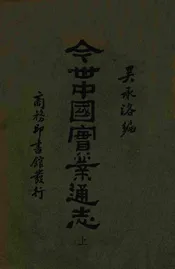 吳承洛編
今世中國實業通志
上
商務印書館發行